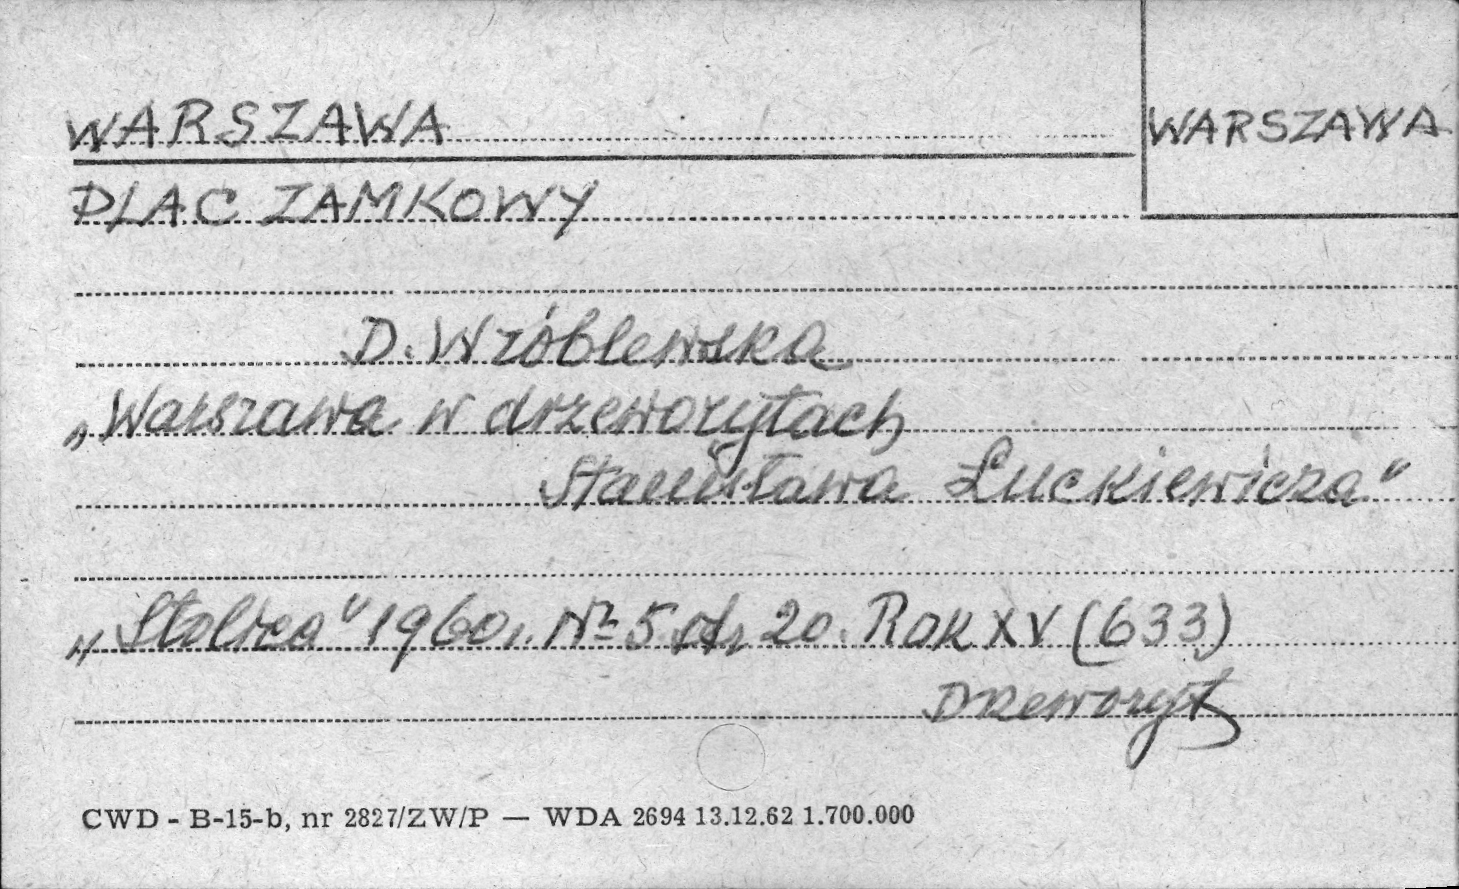 WARSZAWA
WARSZAWA
PLAC ZAMKOWY
D. Wróblewska
„Warszawa w drzeworytach
Stanisława Łuckiewicza"
„Stolica" 1960r. Nr 5 str 20. Rok XV (633)
Drzeworyt
CWD - B-15-b, nr 2827/ZW/P — WDA 2694 13.12.62 1.700.000